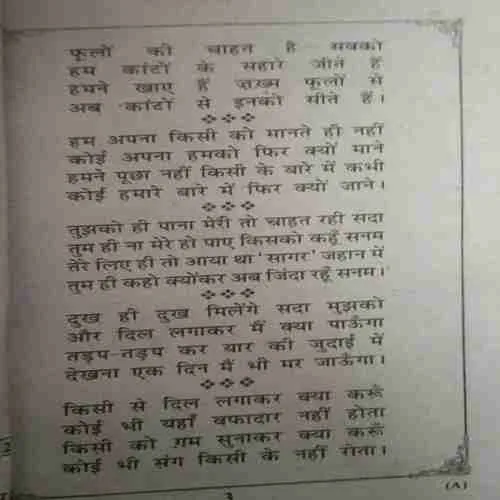 फूलों को चाहत है सबको
हम कांटों के सहारे जीते हैं
हमने खाए हैं ज़ख्म फूलों से
अब कांटों से इनको सीते हैं।
हम अपना किसी को मानते ही नहीं
कोई अपना हमको फिर क्यों माने
हमने पूछा नहीं किसी के बारे में कभी
कोई हमारे बारे में फिर क्यों जाने।
तुझको ही पाना मेरी तो चाहत रही सदा
तुम ही ना मेरे हो पाए किसको कहूँ सनम
तेरे लिए ही तो आया था 'सागर' जहान में
तुम ही कहो क्योंकर अब जिंदा रहूँ सनम।
दुख ही दुख मिलेंगे सदा मुझको
और दिल लगाकर मैं क्या पाऊँगा
तड़प-तड़प कर यार की जुदाई में
देखना एक दिन मैं भी मर जाऊँगा।
किसी से दिल लगाकर क्या करूँ
कोई भी यहाँ वफादार नहीं होता
किसी को ग़म सुनाकर क्या करूँ
कोई भी संग किसी के नहीं रोता।
3
(A)